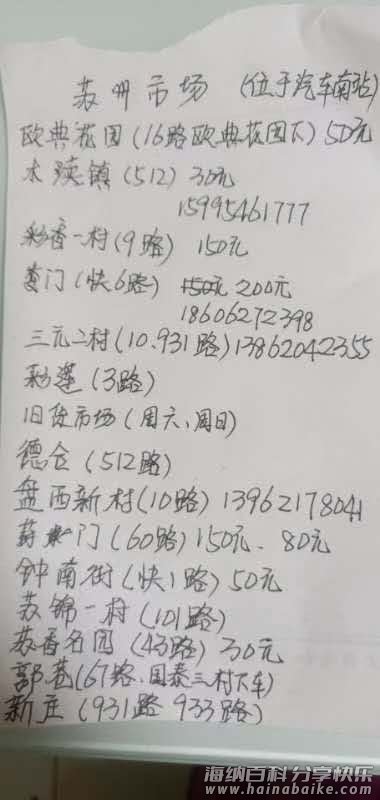 苏州市场 (位于汽车南站)
欧典花园(16路欧典花园下)50元
木渎镇(512) 30元
15995461777
彩香一村(9路) 150元
娄门(快6路) 150元 200元
18606272398
三元二村(10.931路)13862042355
彩莲(3路)
旧货市场(周六、周日)
德合(512路)
盘西新村(10路) 13962178041
葑门(60路)150元.80元
钟南街(快1路)50元
苏锦一村(101路)
苏香名园(43路)30元
郭巷(67路、国泰三村下车)
新庄(931路 933路)
海纳百科 分享快乐
www.hainabaike.com